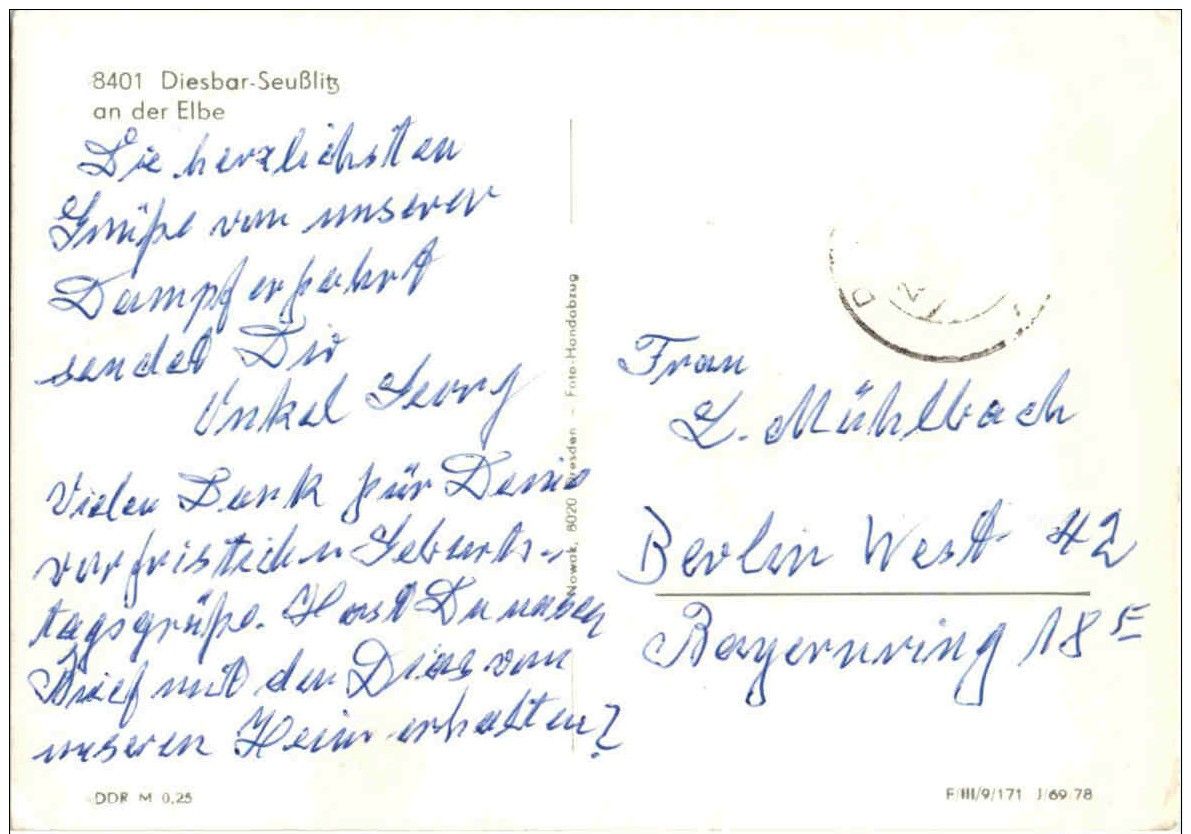 8401 Diesbar-Seußlitz
an der Elbe
Die herzlichsten
Grüße von unserer
Dampferfahrt
sendet Dir
Onkel Georg
Vielen Dank für Deine
vorfristichen Geburts-
tagsgrüße. Hast Du
Brief mit den Dias von
unseren Heim erhalten?
Nowak, 8020 Dresden - Foto-Handabzug
Frau
L. Mühlbach
Berlin West 42
Bayernring 18 E
DDR M 0,25
F/III/9/171 J/69/78